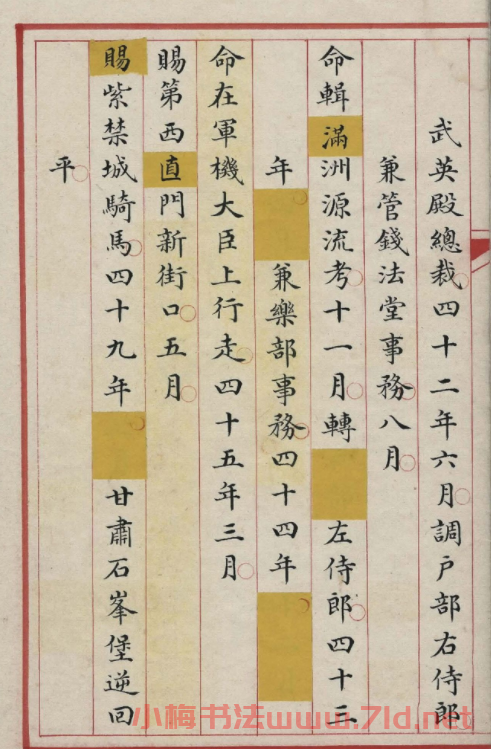 武英殿總裁四十二年六月調戶部右侍郎
兼管錢法堂事務八月
命輯滿洲源流考十一月轉左侍郎四十三
年兼樂部事務四十四年
命在軍機大臣上行走四十五年三月
賜第西直門新街口五月
賜紫禁城騎馬四十九年甘肅石峯堡逆回
平
小梅书法www.7ld.net